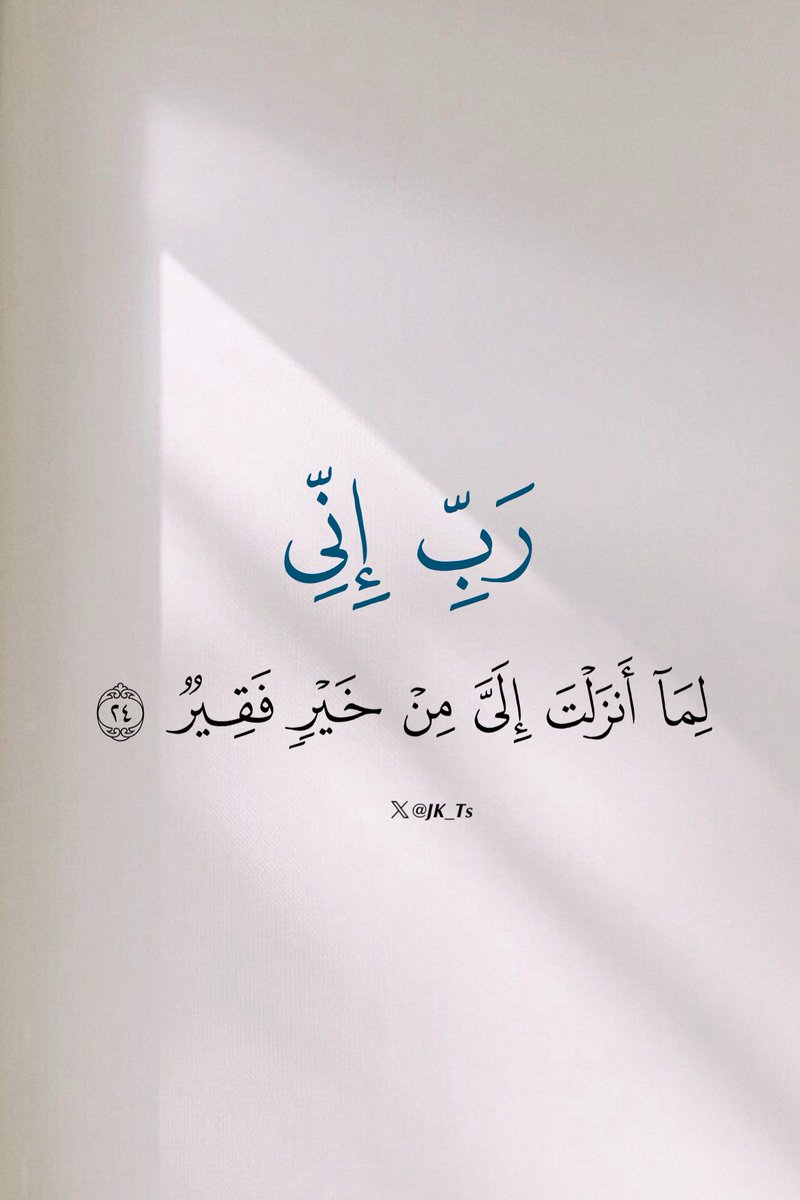 رَبِّ إِنِّى
لِمَآ أَنزَلْتَ إِلَىَّ مِنْ خَيْرٍ فَقِيرٌ ٢٤
𝕏 @JK_Ts